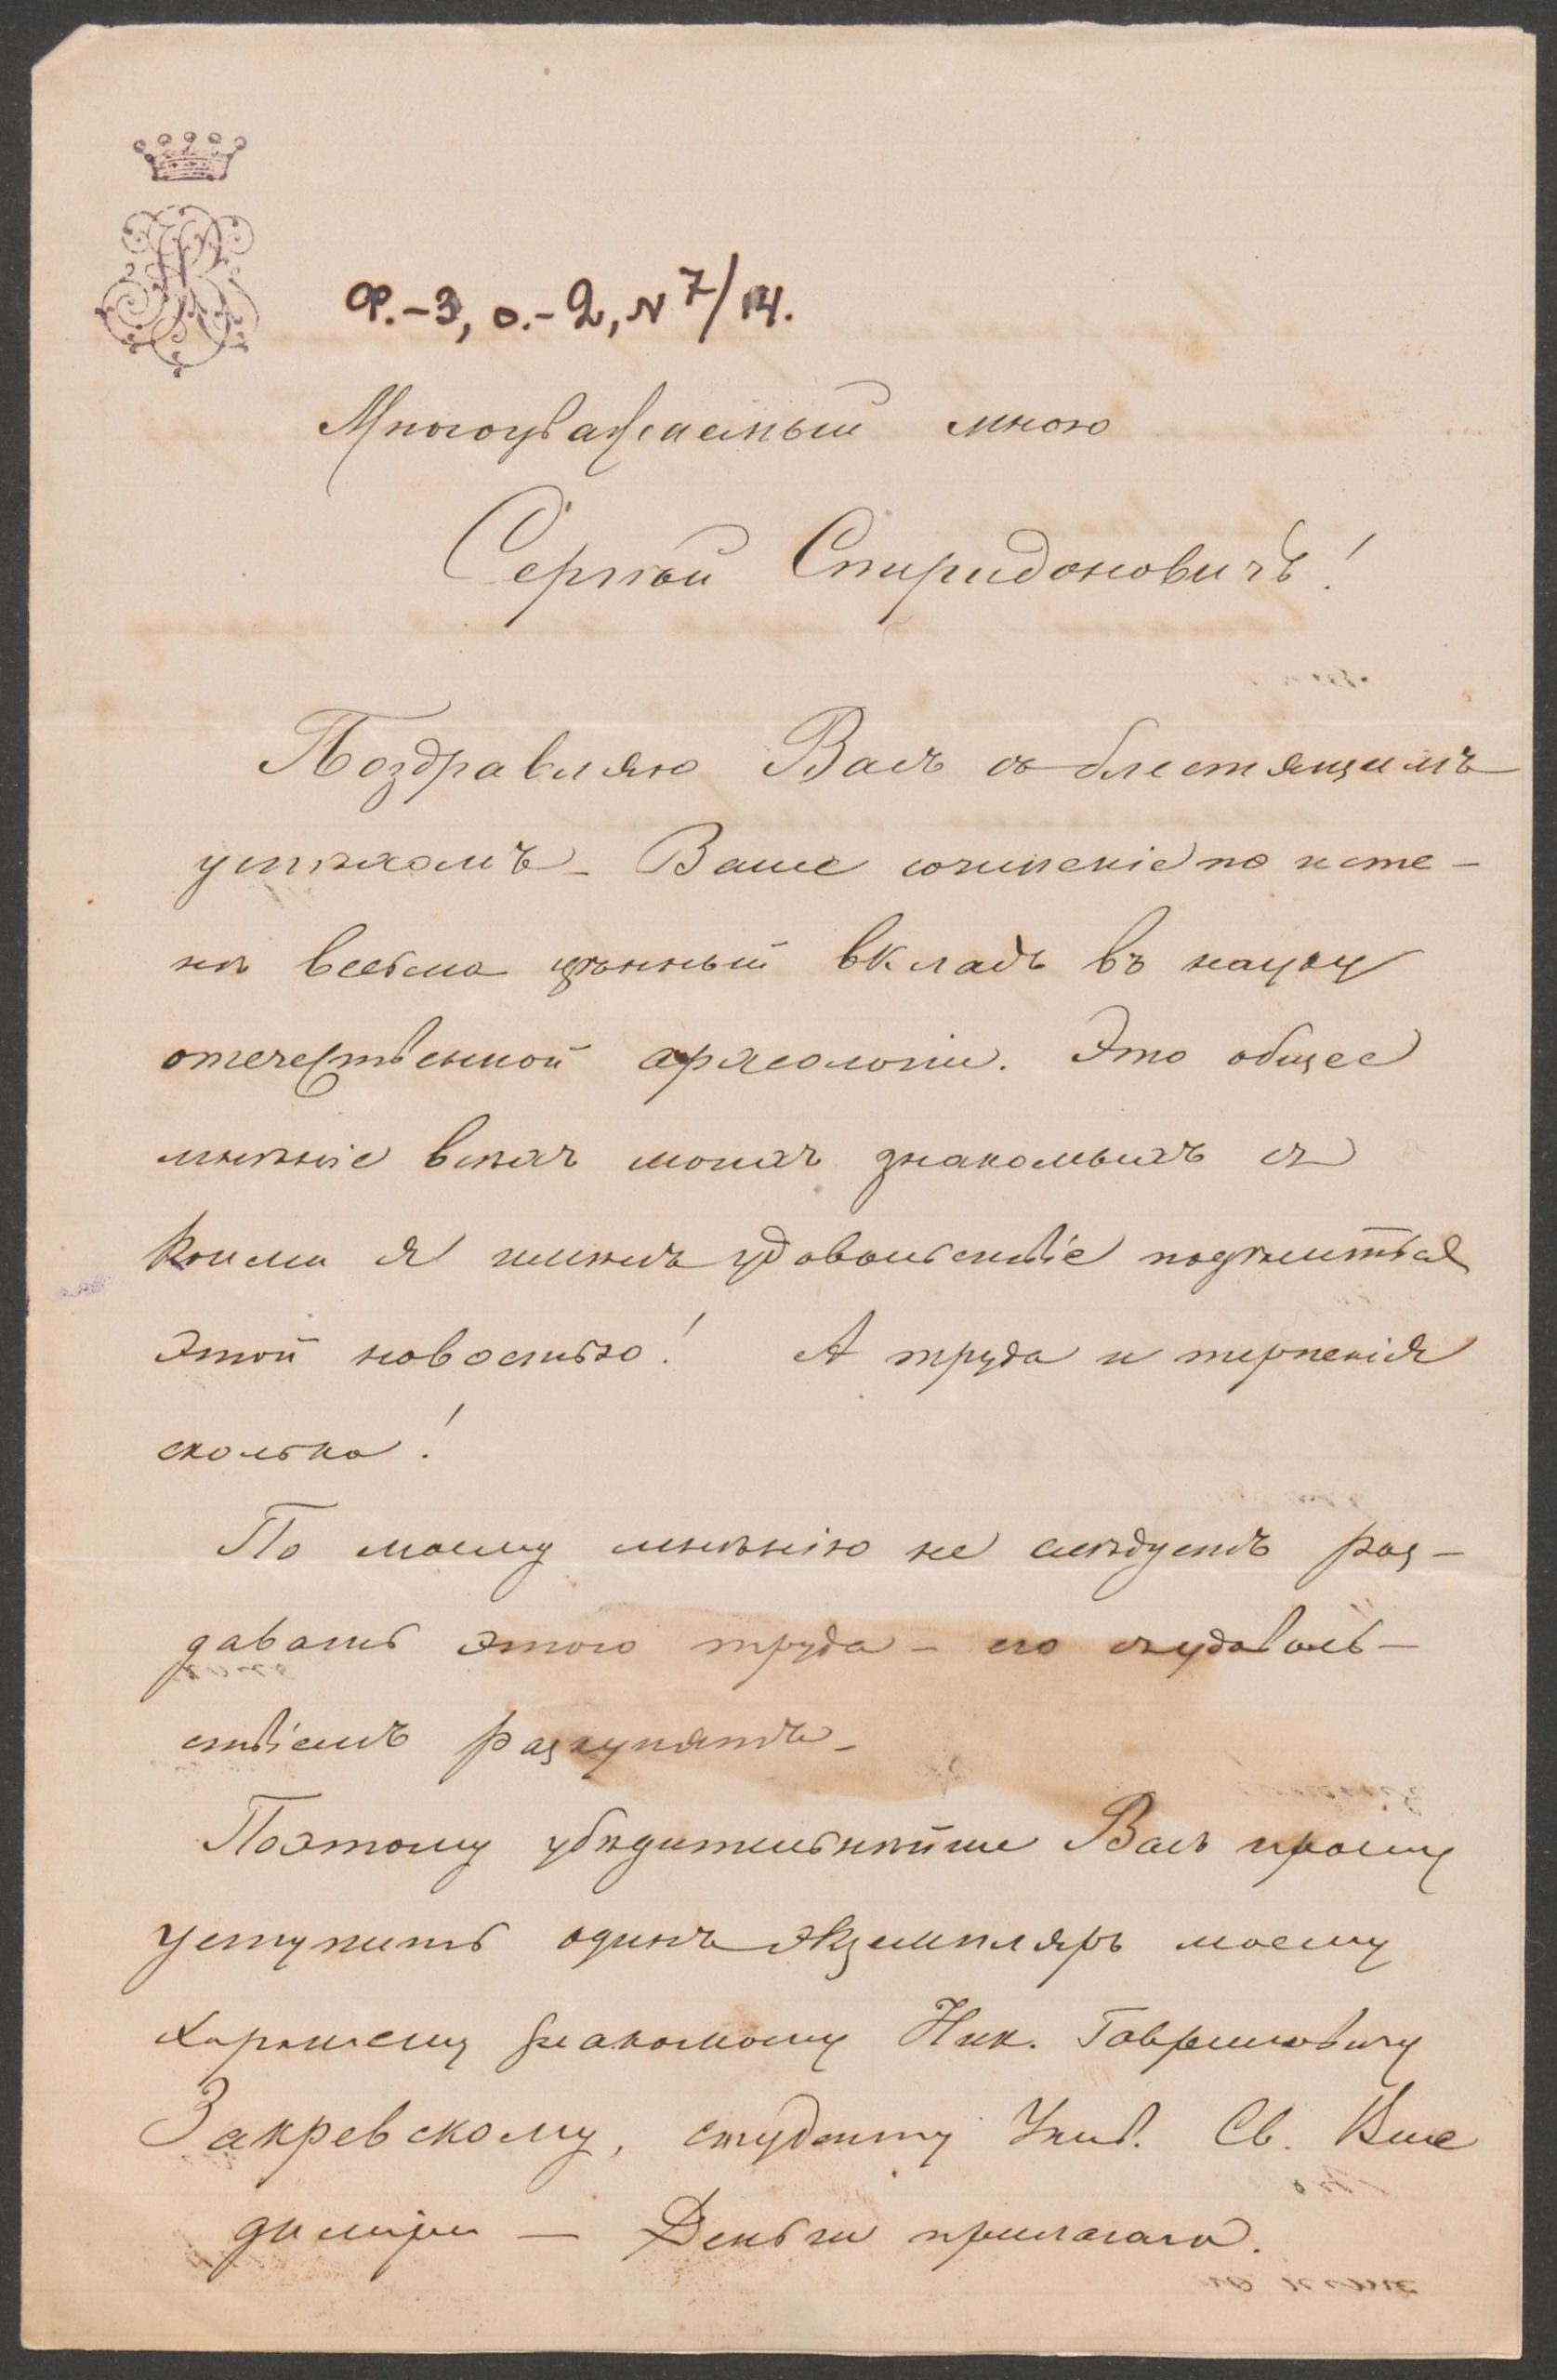 Ф.-3, о.-2, N 7/14.
Многоуважаемый мною
Сергѣй Спиридоновичъ!
Поздравляю Васъ съ блестящимъ
успѣхомъ_ Ваше сочиненіе по исте-
нѣ весьма цѣнный вкладъ въ науку
отечественной археологіи. Это общее
мнѣніе всѣхъ моихъ знакомыхъ съ
коими я имѣлъ удовольствіе подѣлиться
этой новостью! А труда и терпенія
сколько!
По моему мнѣнію не слѣдуетъ раз-
давать этого труда – его съ удоволь-
ствіемъ раскупятъ_
Поэтому убѣдительнѣйше Васъ прошу
уступить одинъ экземпляръ моему
хорошему знакомому Ник. Гавриловичу
Закревскому, студенту Унив. Св. Вла
диміра — Деньги прилагаю.